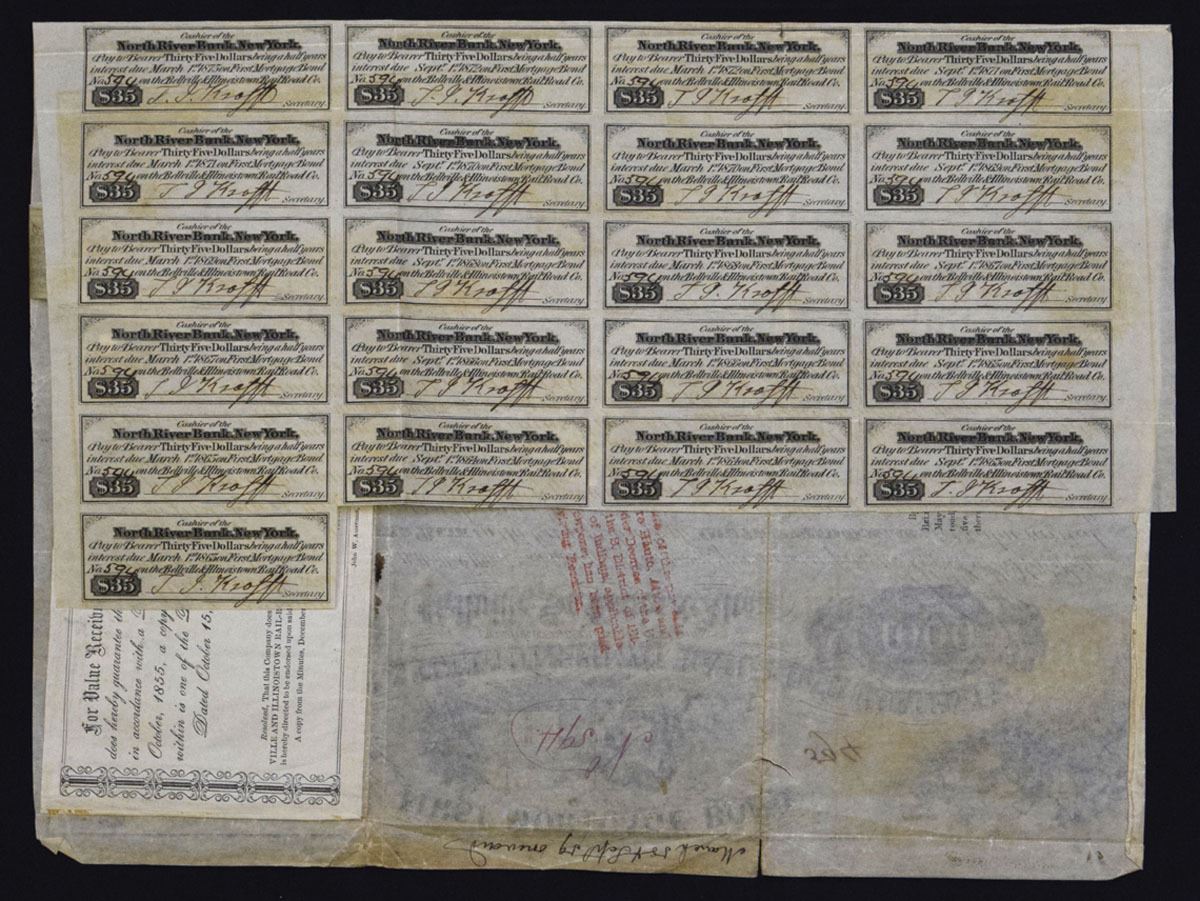 Cashier of the
North River Bank, New York,
Pay to Bearer Thirty Five Dollars being a half years
interest due March 1st 1873 on First Mortgage Bond
No. 594 on the Bellville & Illinoistown Rail Road Co.
$35 T. J. Krafft Secretary.
Cashier of the
North River Bank, New York,
Pay to Bearer Thirty Five Dollars being a half years
interest due Sept. 1st 1872 on First Mortgage Bond
No. 594 on the Bellville & Illinoistown Rail Road Co.
$35 T. J. Krafft Secretary.
Cashier of the
North River Bank, New York,
Pay to Bearer Thirty Five Dollars being a half years
interest due March 1st 1872 on First Mortgage Bond
No. 594 on the Bellville & Illinoistown Rail Road Co.
$35 T J Krafft Secretary.
Cashier of the
North River Bank, New York,
Pay to Bearer Thirty Five Dollars being a half years
interest due Sept. 1st 1871 on First Mortgage Bond
No. 594 on the Bellville & Illinoistown Rail Road Co.
$35 T J Krafft Secretary.
Cashier of the
North River Bank, New York,
Pay to Bearer Thirty Five Dollars being a half years
interest due March 1st 1871 on First Mortgage Bond
No. 594 on the Bellville & Illinoistown Rail Road Co.
$35 T J Krafft Secretary.
Cashier of the
North River Bank, New York,
Pay to Bearer Thirty Five Dollars being a half years
interest due Sept. 1st 1870 on First Mortgage Bond
No. 594 on the Bellville & Illinoistown Rail Road Co.
$35 T J Krafft Secretary.
Cashier of the
North River Bank, New York,
Pay to Bearer Thirty Five Dollars being a half years
interest due March 1st 1870 on First Mortgage Bond
No. 594 on the Bellville & Illinoistown Rail Road Co.
$35 T J Krafft Secretary.
Cashier of the
North River Bank, New York,
Pay to Bearer Thirty Five Dollars being a half years
interest due Sept. 1st 1869 on First Mortgage Bond
No. 594 on the Bellville & Illinoistown Rail Road Co.
$35 T J Krafft Secretary.
Cashier of the
North River Bank, New York,
Pay to Bearer Thirty Five Dollars being a half years
interest due March 1st 1869 on First Mortgage Bond
No. 594 on the Bellville & Illinoistown Rail Road Co.
$35 T J Krafft Secretary
Cashier of the
North River Bank, New York,
Pay to Bearer Thirty Five Dollars being a half years
interest due Sept. 1st 1868 on First Mortgage Bond
No. 594 on the Bellville & Illinoistown Rail Road Co.
$35 T J Krafft Secretary.
Cashier of the
North River Bank, New York,
Pay to Bearer Thirty Five Dollars being a half years
interest due March 1st 1868 on First Mortgage Bond
No. 594 on the Bellville & Illinoistown Rail Road Co.
$35 T J. Krafft Secretary.
Cashier of the
North River Bank, New York,
Pay to Bearer Thirty Five Dollars being a half years
interest due Sept. 1st 1867 on First Mortgage Bond
No. 594 on the Bellville & Illinoistown Rail Road Co.
$35 T J Krafft Secretary.
Cashier of the
North River Bank, New York,
Pay to Bearer Thirty Five Dollars being a half years
interest due March 1st 1867 on First Mortgage Bond
No. 594 on the Bellville & Illinoistown Rail Road Co.
$35 T J Krafft Secretary.
Cashier of the
North River Bank, New York,
Pay to Bearer Thirty Five Dollars being a half years
interest due Sept. 1st 1866 on First Mortgage Bond
No. 594 on the Bellville & Illinoistown Rail Road Co.
$35 T J Krafft Secretary.
Cashier of the
North River Bank, New York,
Pay to Bearer Thirty Five Dollars being a half years
interest due March 1st 1866 on First Mortgage Bond
No. 594 on the Bellville & Illinoistown Rail Road Co.
$35 T J Krafft Secretary.
Cashier of the
North River Bank, New York,
Pay to Bearer Thirty Five Dollars being a half years
interest due Sept. 1st 1865 on First Mortgage Bond
No. 594 on the Bellville & Illinoistown Rail Road Co.
$35 T J Krafft Secretary.
Cashier of the
North River Bank, New York,
Pay to Bearer Thirty Five Dollars being a half years
interest due March 1st 1865 on First Mortgage Bond
No. 594 on the Bellville & Illinoistown Rail Road Co.
$35 T J Krafft Secretary.
Cashier of the
North River Bank, New York,
Pay to Bearer Thirty Five Dollars being a half years
interest due Sept. 1st 1864 on First Mortgage Bond
No. 594 on the Bellville & Illinoistown Rail Road Co.
$35 T J Krafft Secretary.
Cashier of the
North River Bank, New York,
Pay to Bearer Thirty Five Dollars being a half years
interest due March 1st 1864 on First Mortgage Bond
No. 594 on the Bellville & Illinoistown Rail Road Co.
$35 T J Krafft Secretary.
Cashier of the
North River Bank, New York,
Pay to Bearer Thirty Five Dollars being a half years
interest due Sept. 1st 1863 on First Mortgage Bond
No. 594 on the Bellville & Illinoistown Rail Road Co.
$35 T. J Krafft Secretary.
Cashier of the
North River Bank, New York,
Pay to Bearer Thirty Five Dollars being a half years
interest due March 1st 1863 on First Mortgage Bond
No. 594 on the Bellville & Illinoistown Rail Road Co.
$35 T. J. Krafft Secretary.
For Value Receiv
does hereby guarantee th
in accordance with a
October, 1855, a copy
within is one of the
Dated October 15,
Resolved, That this Company does
VILLE AND ILLINOISTOWN RAIL-R
is hereby directed to be endorsed upon said
A copy from the Minutes, December
John W. Amerman
594